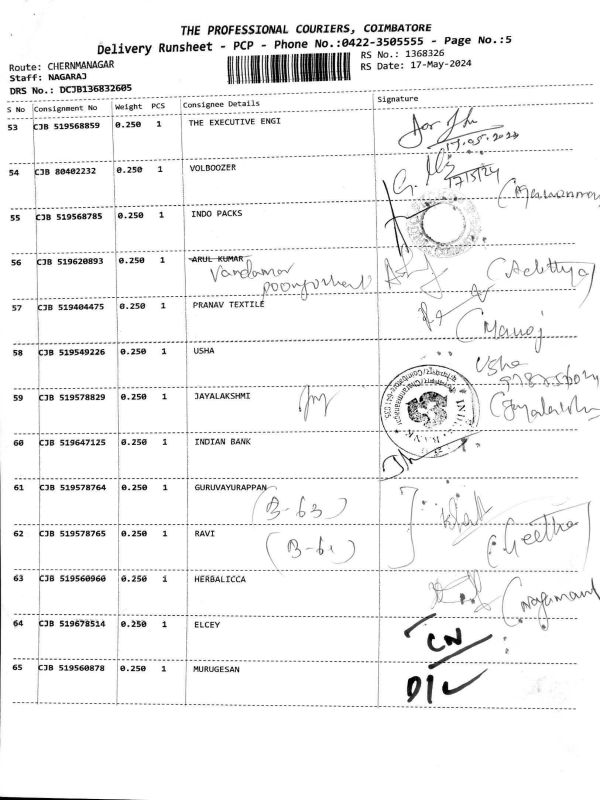 THE PROFESSIONAL COURIERS, COIMBATORE
Delivery Runsheet - PCP - Phone No.:0422-3505555 - Page No.:5
Route: CHERNMANAGAR
RS No.: 1368326
Staff: NAGARAJ
RS Date: 17-May-2024
DRS No.: DCJB136832605
S No Consignment No Weight PCS Consignee Details Signature
53 CJB 519568859 0.250 1 THE EXECUTIVE ENGI
54 CJB 80402232 0.250 1 VOLBOOZER
17/5/24
55 CJB 519568785 0.250 1 INDO PACKS
56 CJB 519620893 0.250 1 ARUL KUMAR
(Adithya)
57 CJB 519404475 0.250 1 PRANAV TEXTILE
(Manoj
58 CJB 519549226 0.250 1 USHA
Usha
59 CJB 519578829 0.250 1 JAYALAKSHMI
60 CJB 519647125 0.250 1 INDIAN BANK
61 CJB 519578764 0.250 1 GURUVAYURAPPAN
(B-63)
62 CJB 519578765 0.250 1 RAVI
(Geetha)
63 CJB 519560960 0.250 1 HERBALICCA
64 CJB 519678514 0.250 1 ELCEY
CN
65 CJB 519560878 0.250 1 MURUGESAN
D/L